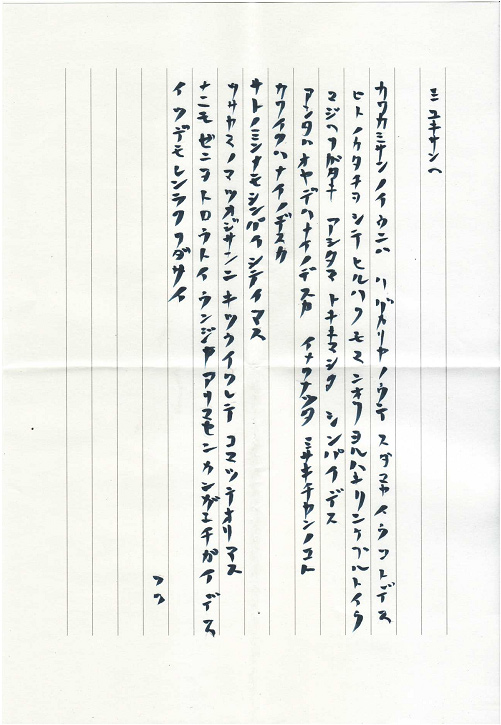 ミユキサンヘ
カワカミサンノイウニハ ハリガカリヤノウテ スダマヤイウコトデス
ヒトノケタチヲシテヒルハクモマニオワヨルハ
アシタマ トキキマシタ シンパイデス
アンタハオヤデハナイノデスカ イナクナッタ ミサキチャンノコト
カワイクハナイノデスカ
キトノミンナモシンパイシテイマス
ササヤマノマツオジサンニ キツウイワレテ コマッテオリマス
ナニモ ゼニヲトロウトイウンジャアリマセンカンガエチガイデス
イツデモレンラククダサイ